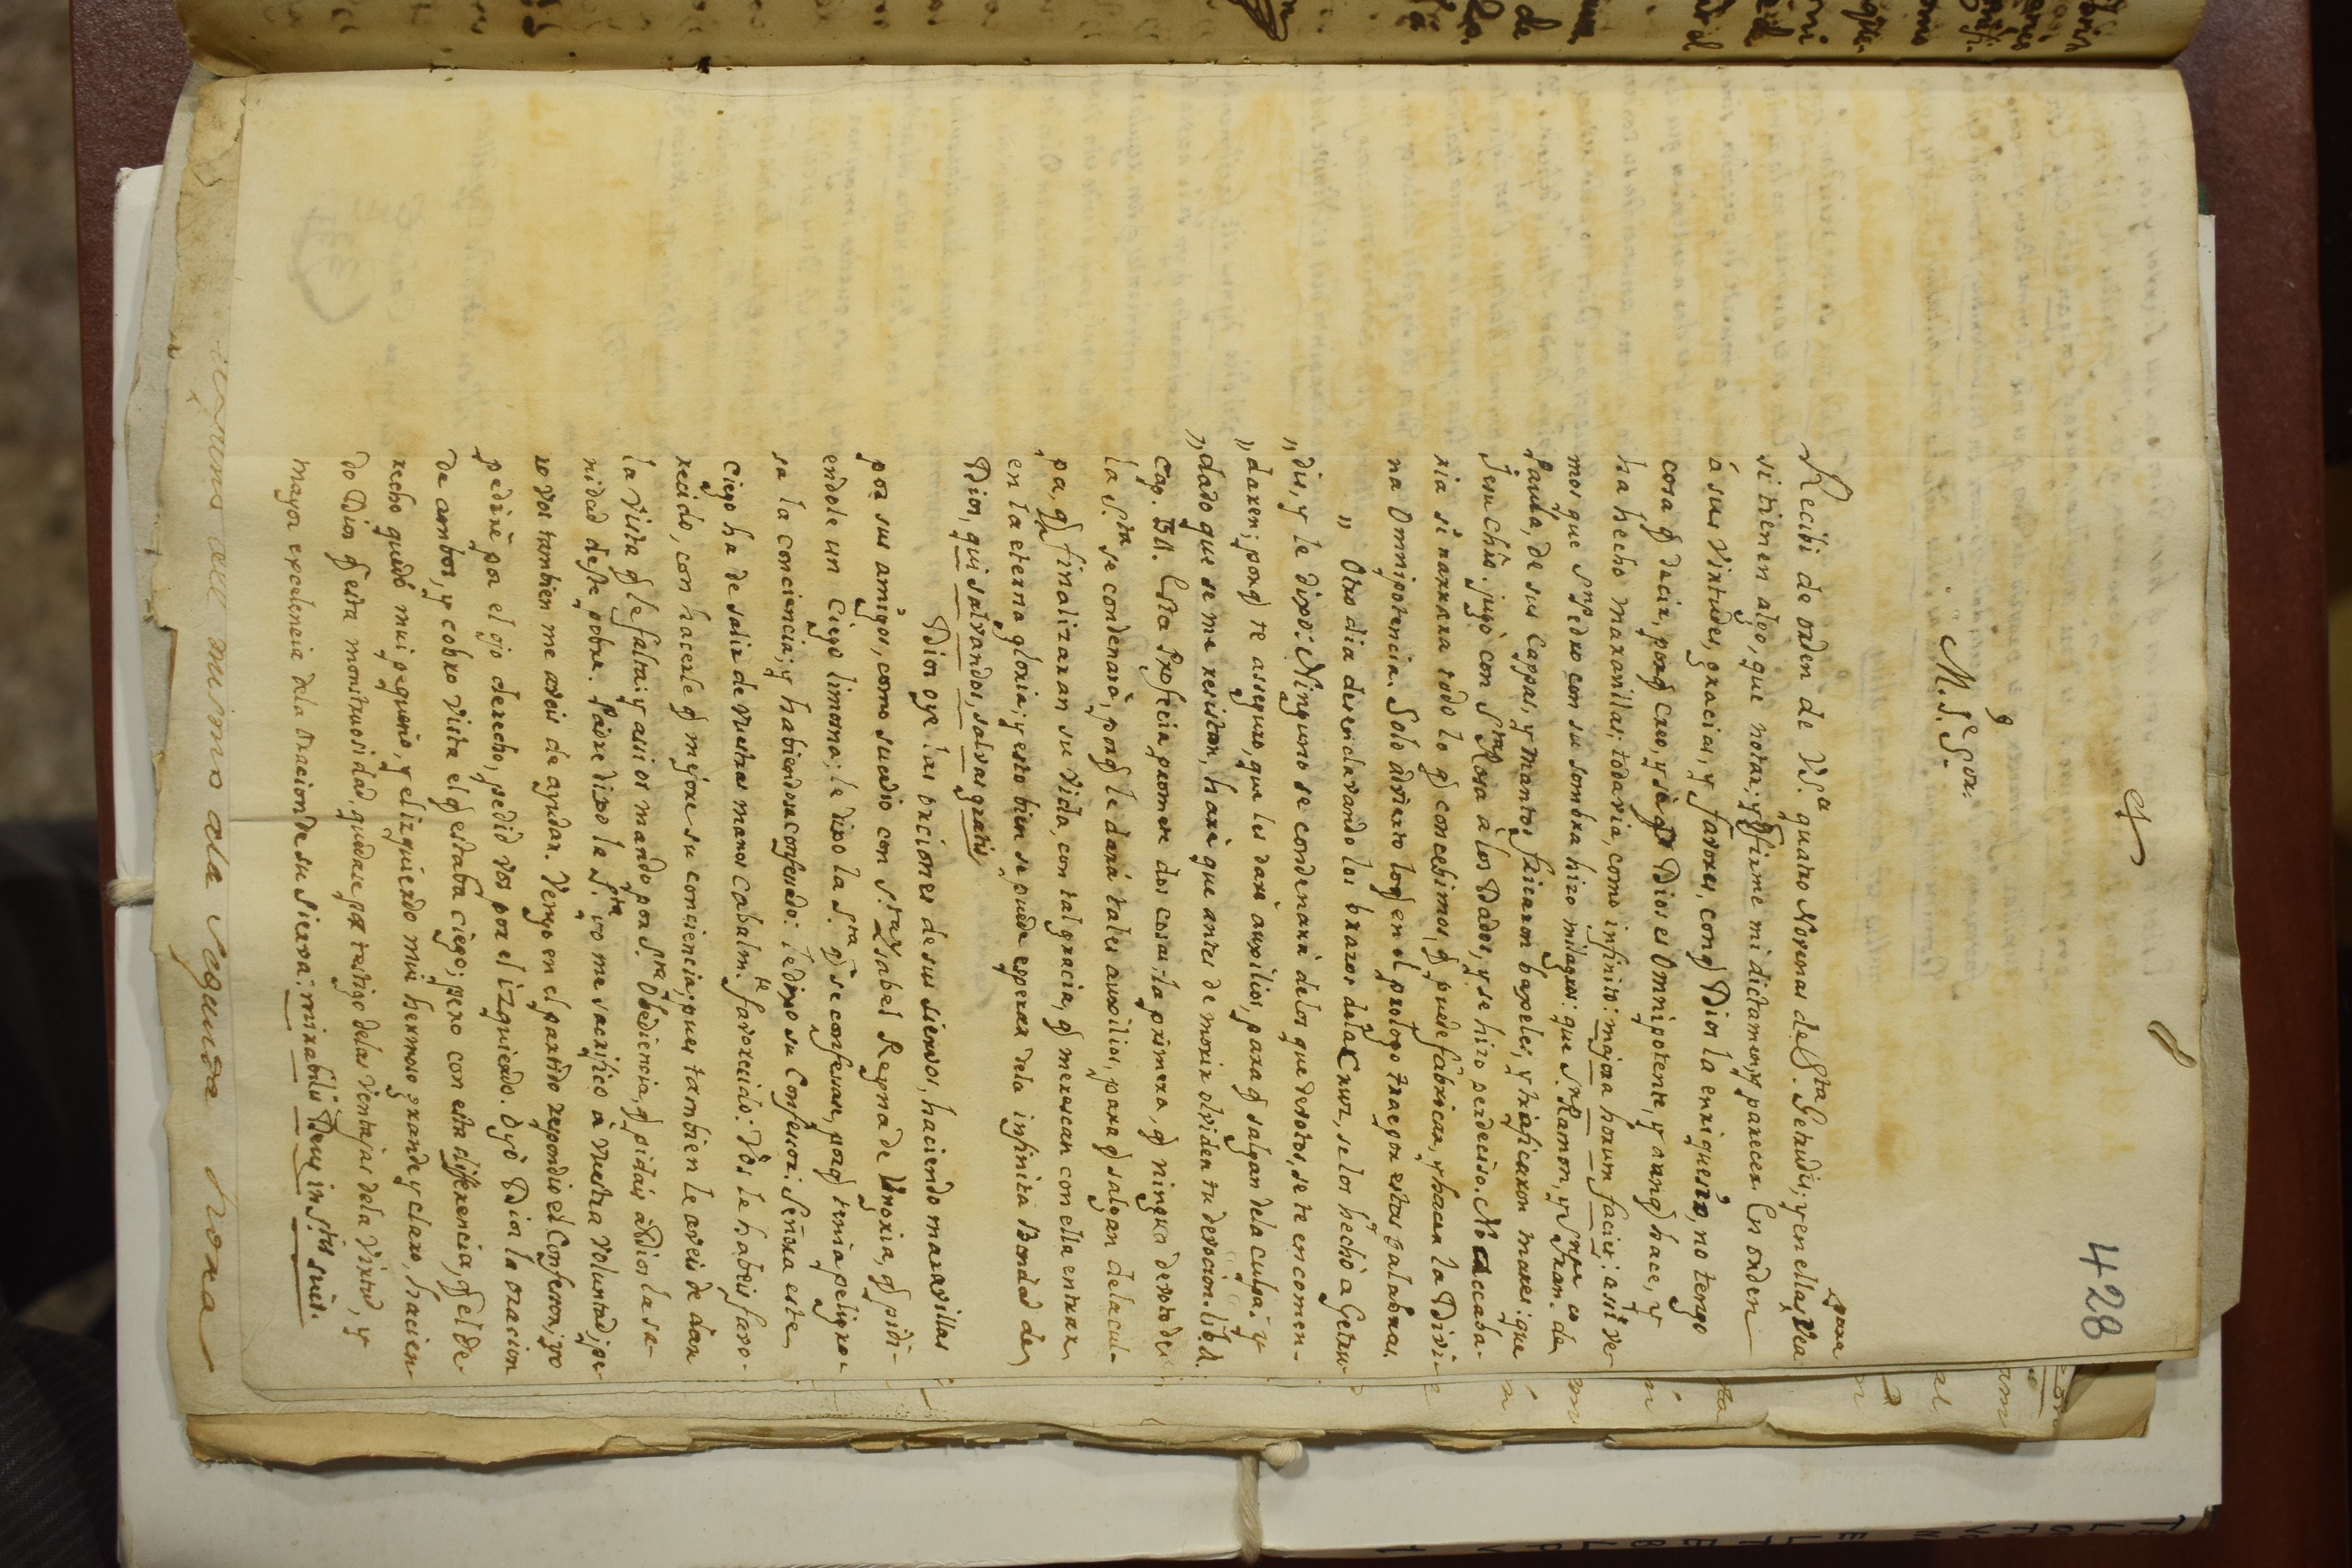 428
M. I. S.or
Recibi de orden de V.S.a quatro Novenas de S.ta Getrudis; y en ellas vea
para
si tienen algo, que notar; y q firme mi dictamen, y parecer. En orden
á sus Virtudes, gracias, y favores, con q Dios la enriquesió, no tengo
cosa q decir, porq creo, y sè q Dios es Omnipotente, y aunq hace, y
ha hecho maravillas; todavia, como infinito: majora horum faciet: assi ve-
mos que S.n Pedro con su sombra hizo milagros: que S.n Ramon, y S.n Fran.co de
Paula, de sus Cappas, y Mantos hicieron baxeles, y traficaron mares: que
Jesuchto. jugò con S.ta Rosa à los Dados, y se hizo perdediso. No accaba-
ria si narrara todo lo q concebimos, q puede fabricar, y hacer la Divi-
na Omnipotencia. Solo advierto lo q en el prologo trae por estas palabras.
" Otro dia desenclavando los brazos dela Cruz, se los hechò a Getru-
" dis, y le dixo: Ninguno se condenarà delos que devotos, se te encomen-
" daren; porq te asseguro, que les darè auxilios, para q salgan dela culpa: y
" dado que se me resistan, harè que antes de morir olviden tu devocion. lib. 1.
cap. Esta Profecia promete dos cosas; la primera, q ningun devoto de
la S.ta se condenarà, porq le darà tales auxilios, para q salgan dela cul-
pa, q finalizaran su vida, con tal gracia, q merescan con ella entrar
en la eterna gloria; y esto bien se puede esperar dela infinita Bondad de
Dios, qui salvandos, salvas gratis.
Dios oye las oraciones de sus siervos, haciendo maravillas
por sus amigos, como sucedio con S.ta Isabel Reyna de Ungria, q pidi-
endole un Ciego limosna; le dixo la S.ta q se confesase, porq tenia peligro-
sa la conciencia; y habiendose confesado: le dixo su Confesor: Señora este
ciego ha de salir de vuestras manos cabalm.te favorecido: Vos le habeis favo-
recido, con hacerle q mejore su conciencia; pues tambien le aveis de dar
la vista q le falta; y assi os mando por S.ta Obediencia, q pidais à Dios la sa-
nidad deste pobre. Padre dixo la S.ta yo me sacrifico à vuestra voluntad; pe-
ro vos tambien me aveis de ayudar. Vengo en el partido respondio el Confesor; yo
pedirè por el ojo derecho, pedid vos por el izquierdo. Oyò Dios la oracion
de ambos, y cobro vista el q estaba ciego; pero con esta differencia, q el de-
recho quedò mui pequeño, y el izquierdo mui hermoso grande y claro, hacien-
do Dios q esta monstruosidad, quedase por testigo delas ventajas dela virtud, y
mayor excelencia dela oracion de su sierva: mirabilis Deus in S.tis suis.
mismo ala segunda hoxa